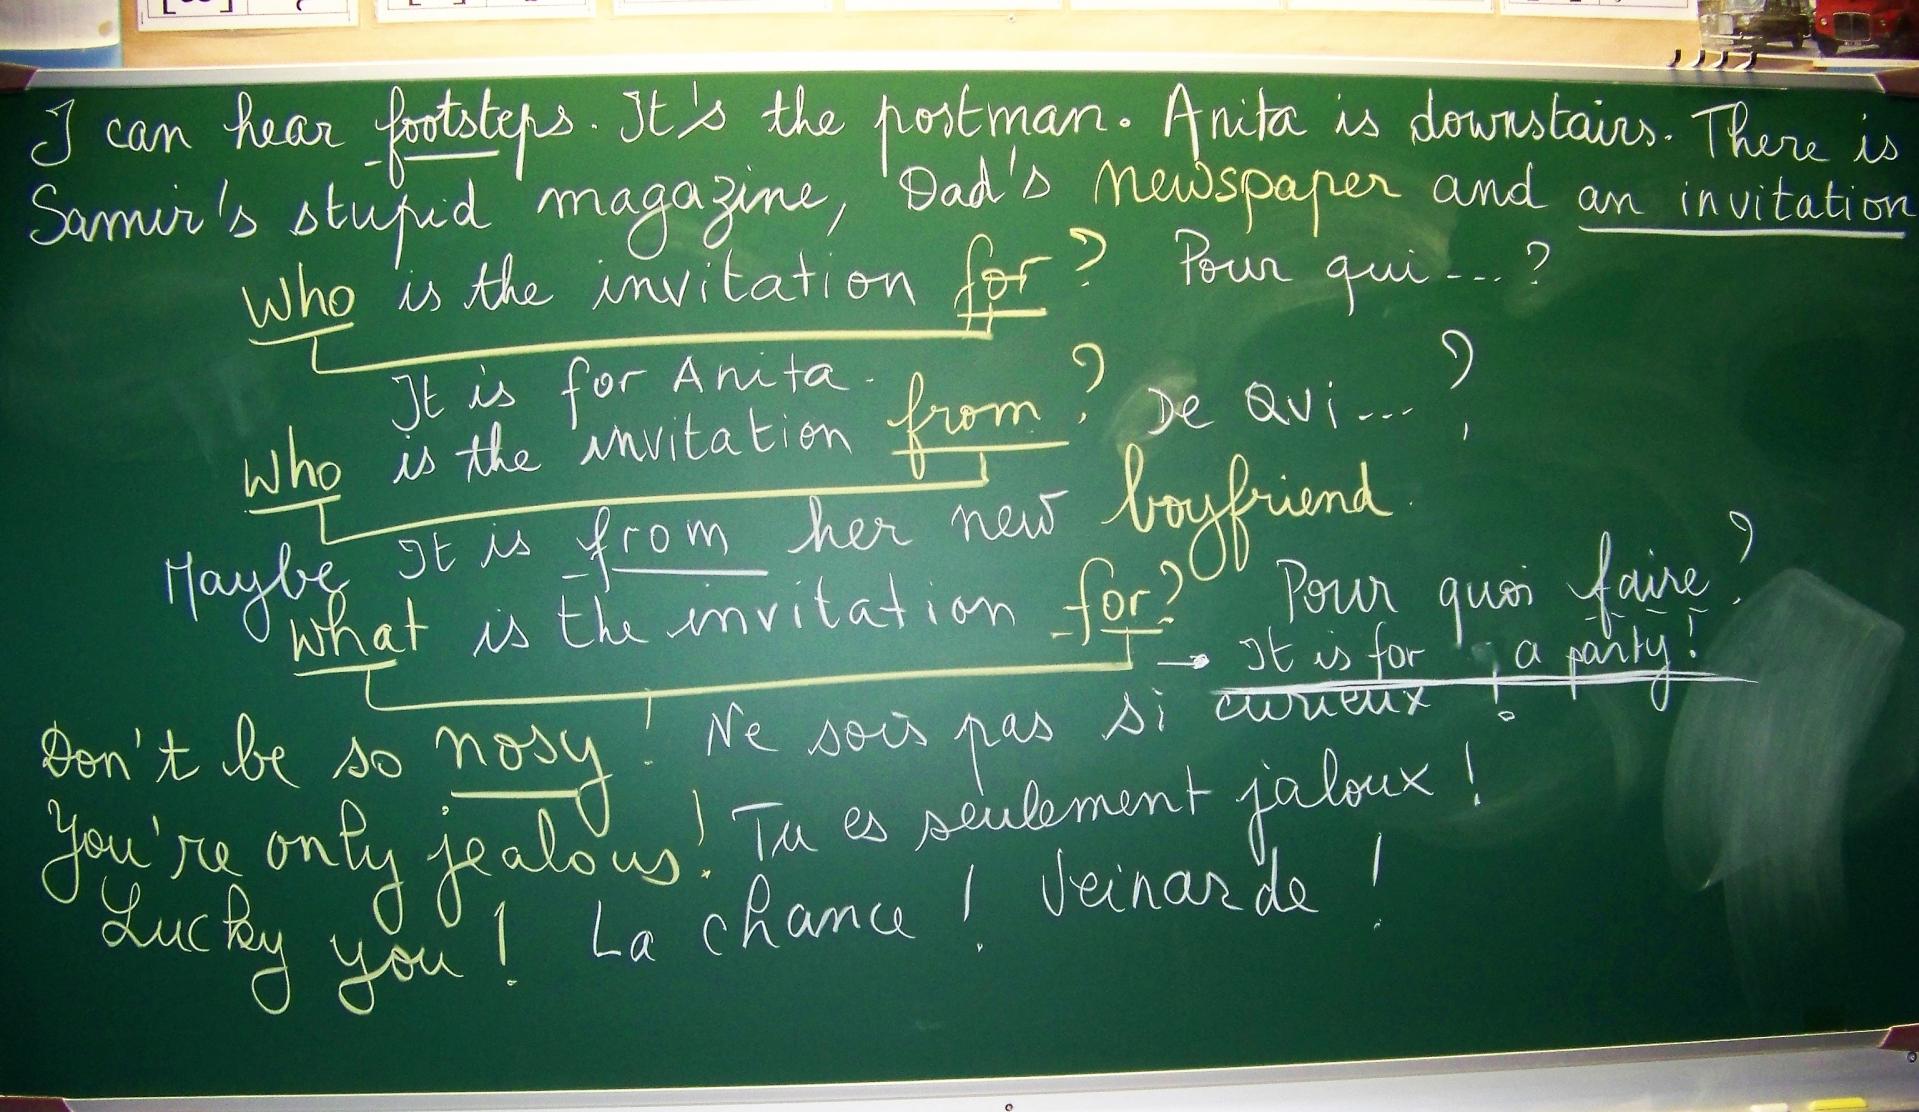 I can hear footsteps. It's the postman. Anita is downstairs. There is
Samir's stupid magazine, Dad's newspaper and an invitation
Who is the invitation for? Pour qui...?
It is for Anita.
Who is the invitation from? De Qui...?
Maybe It is from her new boyfriend.
What is the invitation for? Pour quoi faire?
→ It is for a party!
Don't be so nosy! Ne sois pas si curieux!
You're only jealous! Tu es seulement jaloux!
Lucky you! La chance! Veinarde!